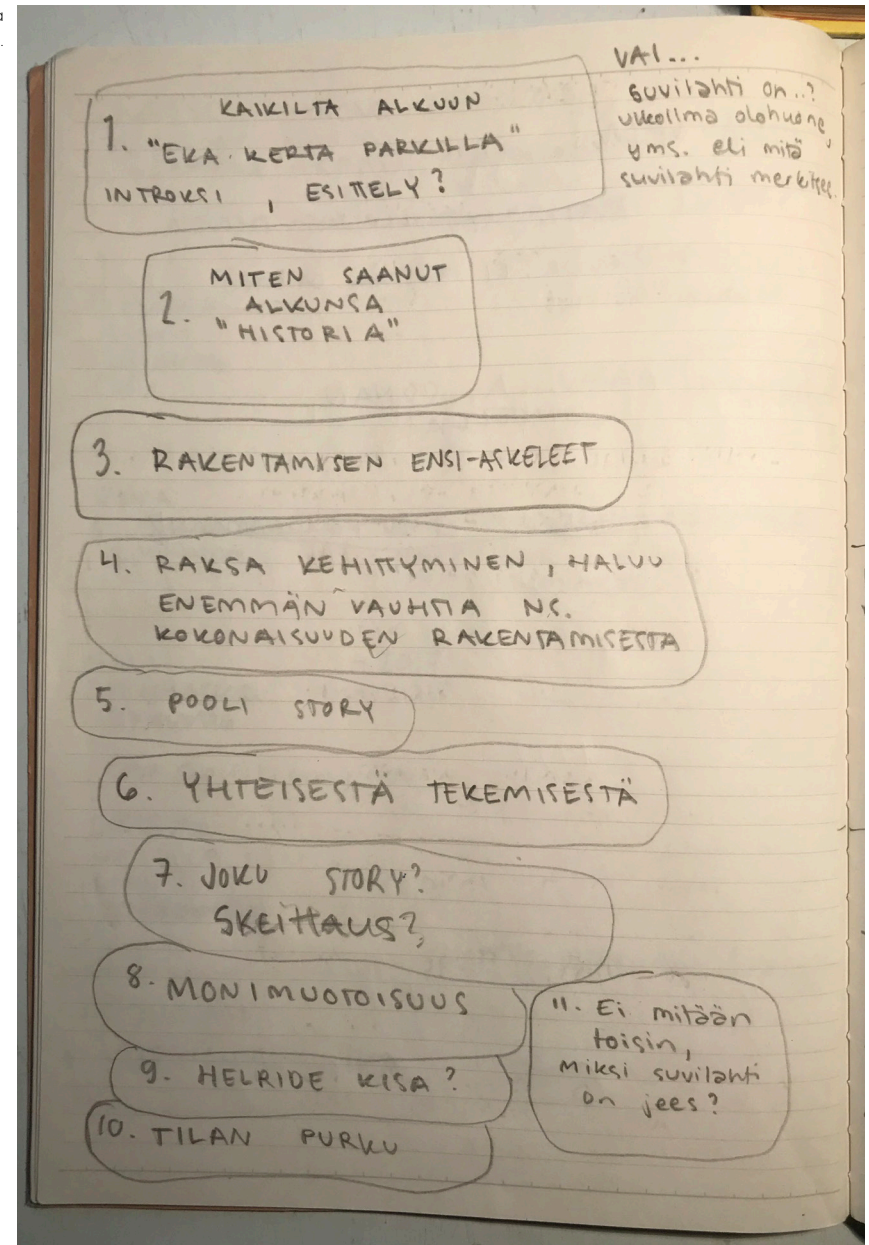 KAIKILTA ALKUUN
1. "EKA KERTA PARKILLA"
INTROKSI , ESITTELY?
VAI...
suvilahti on..?
ulkoilma olohuone,
yms. eli mitä
suvilahti merkitsee.
MITEN SAANUT
2. ALKUNSA
"HISTORIA"
3. RAKENTAMISEN ENSI-ASKELEET
4. RAKSA KEHITTYMINEN, HALUU
ENEMMÄN VAUHTIA N.S.
KOKONAISUUDEN RAKENTAMISESTA
5. POOLI STORY
6. YHTEISESTÄ TEKEMISESTÄ
7. JOKU STORY?
SKEITTAUS?,
8. MONIMUOTOISUUS
9. HELRIDE KISA?
10. TILAN PURKU
11. Ei mitään
toisin,
Miksi suvilahti
on jees?